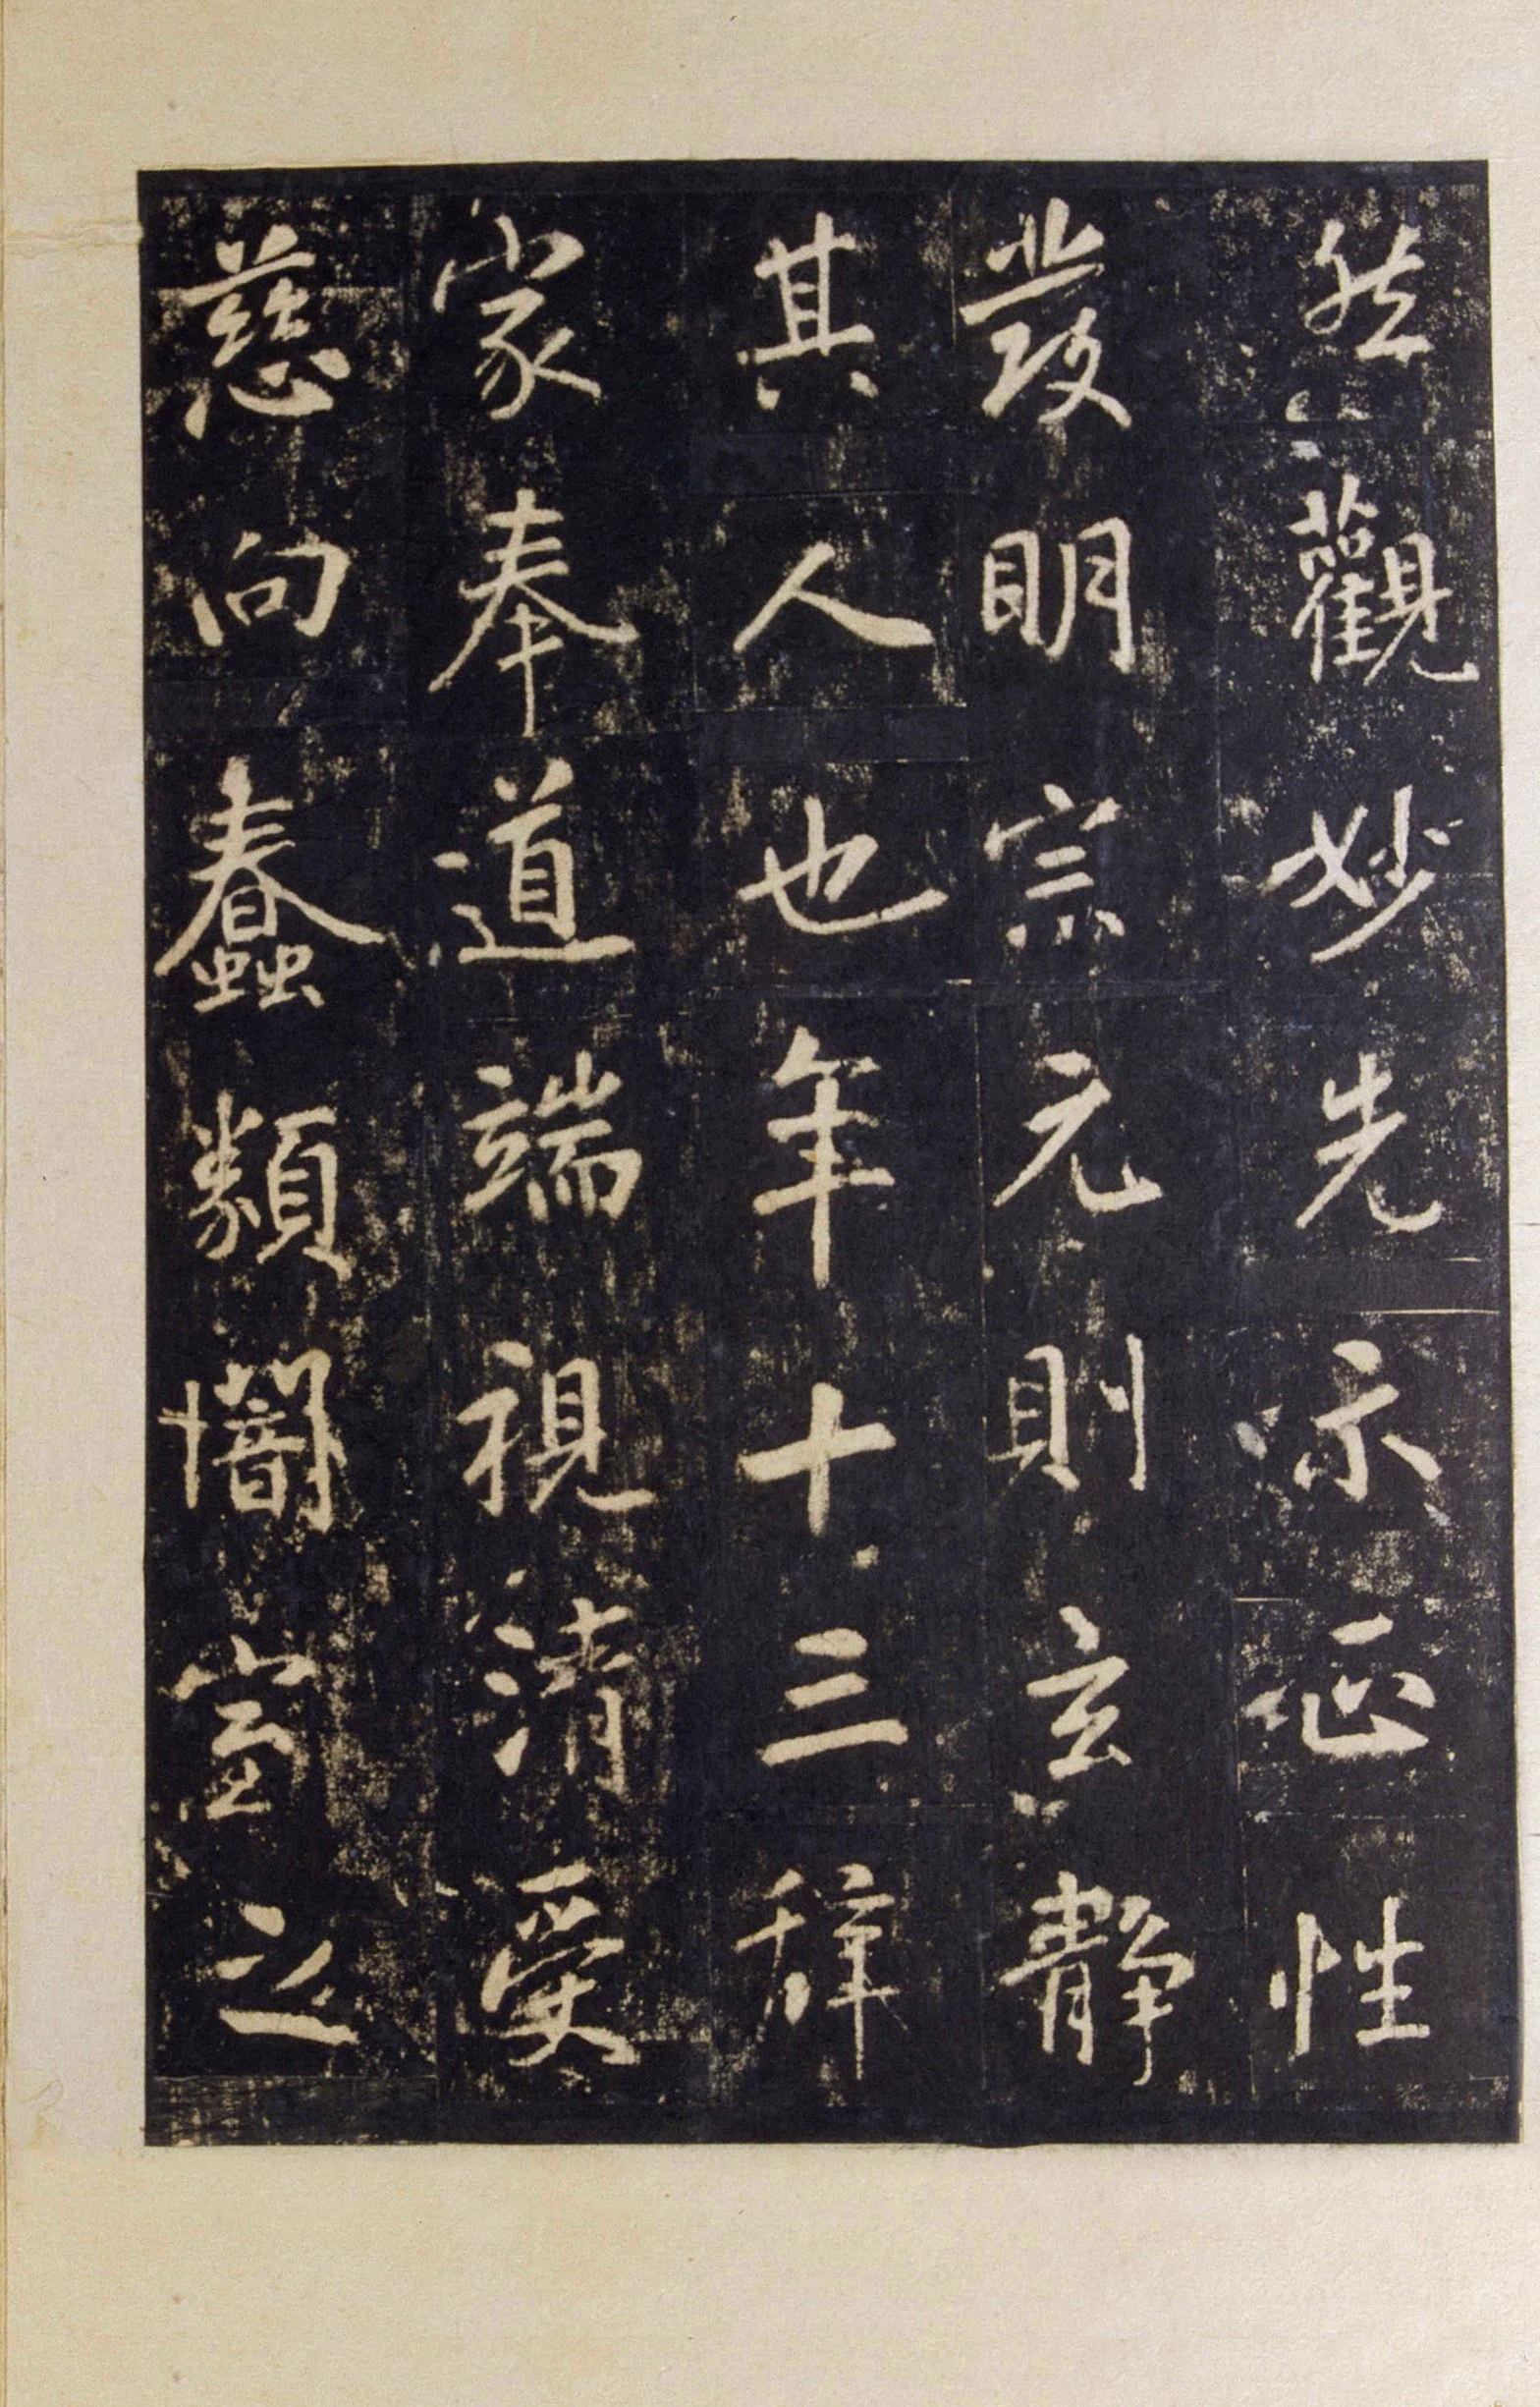 然觀妙先示正性
發明宗元則玄靜
其人也年十三辞
家奉道端視清受
慈向蠢類懰室之